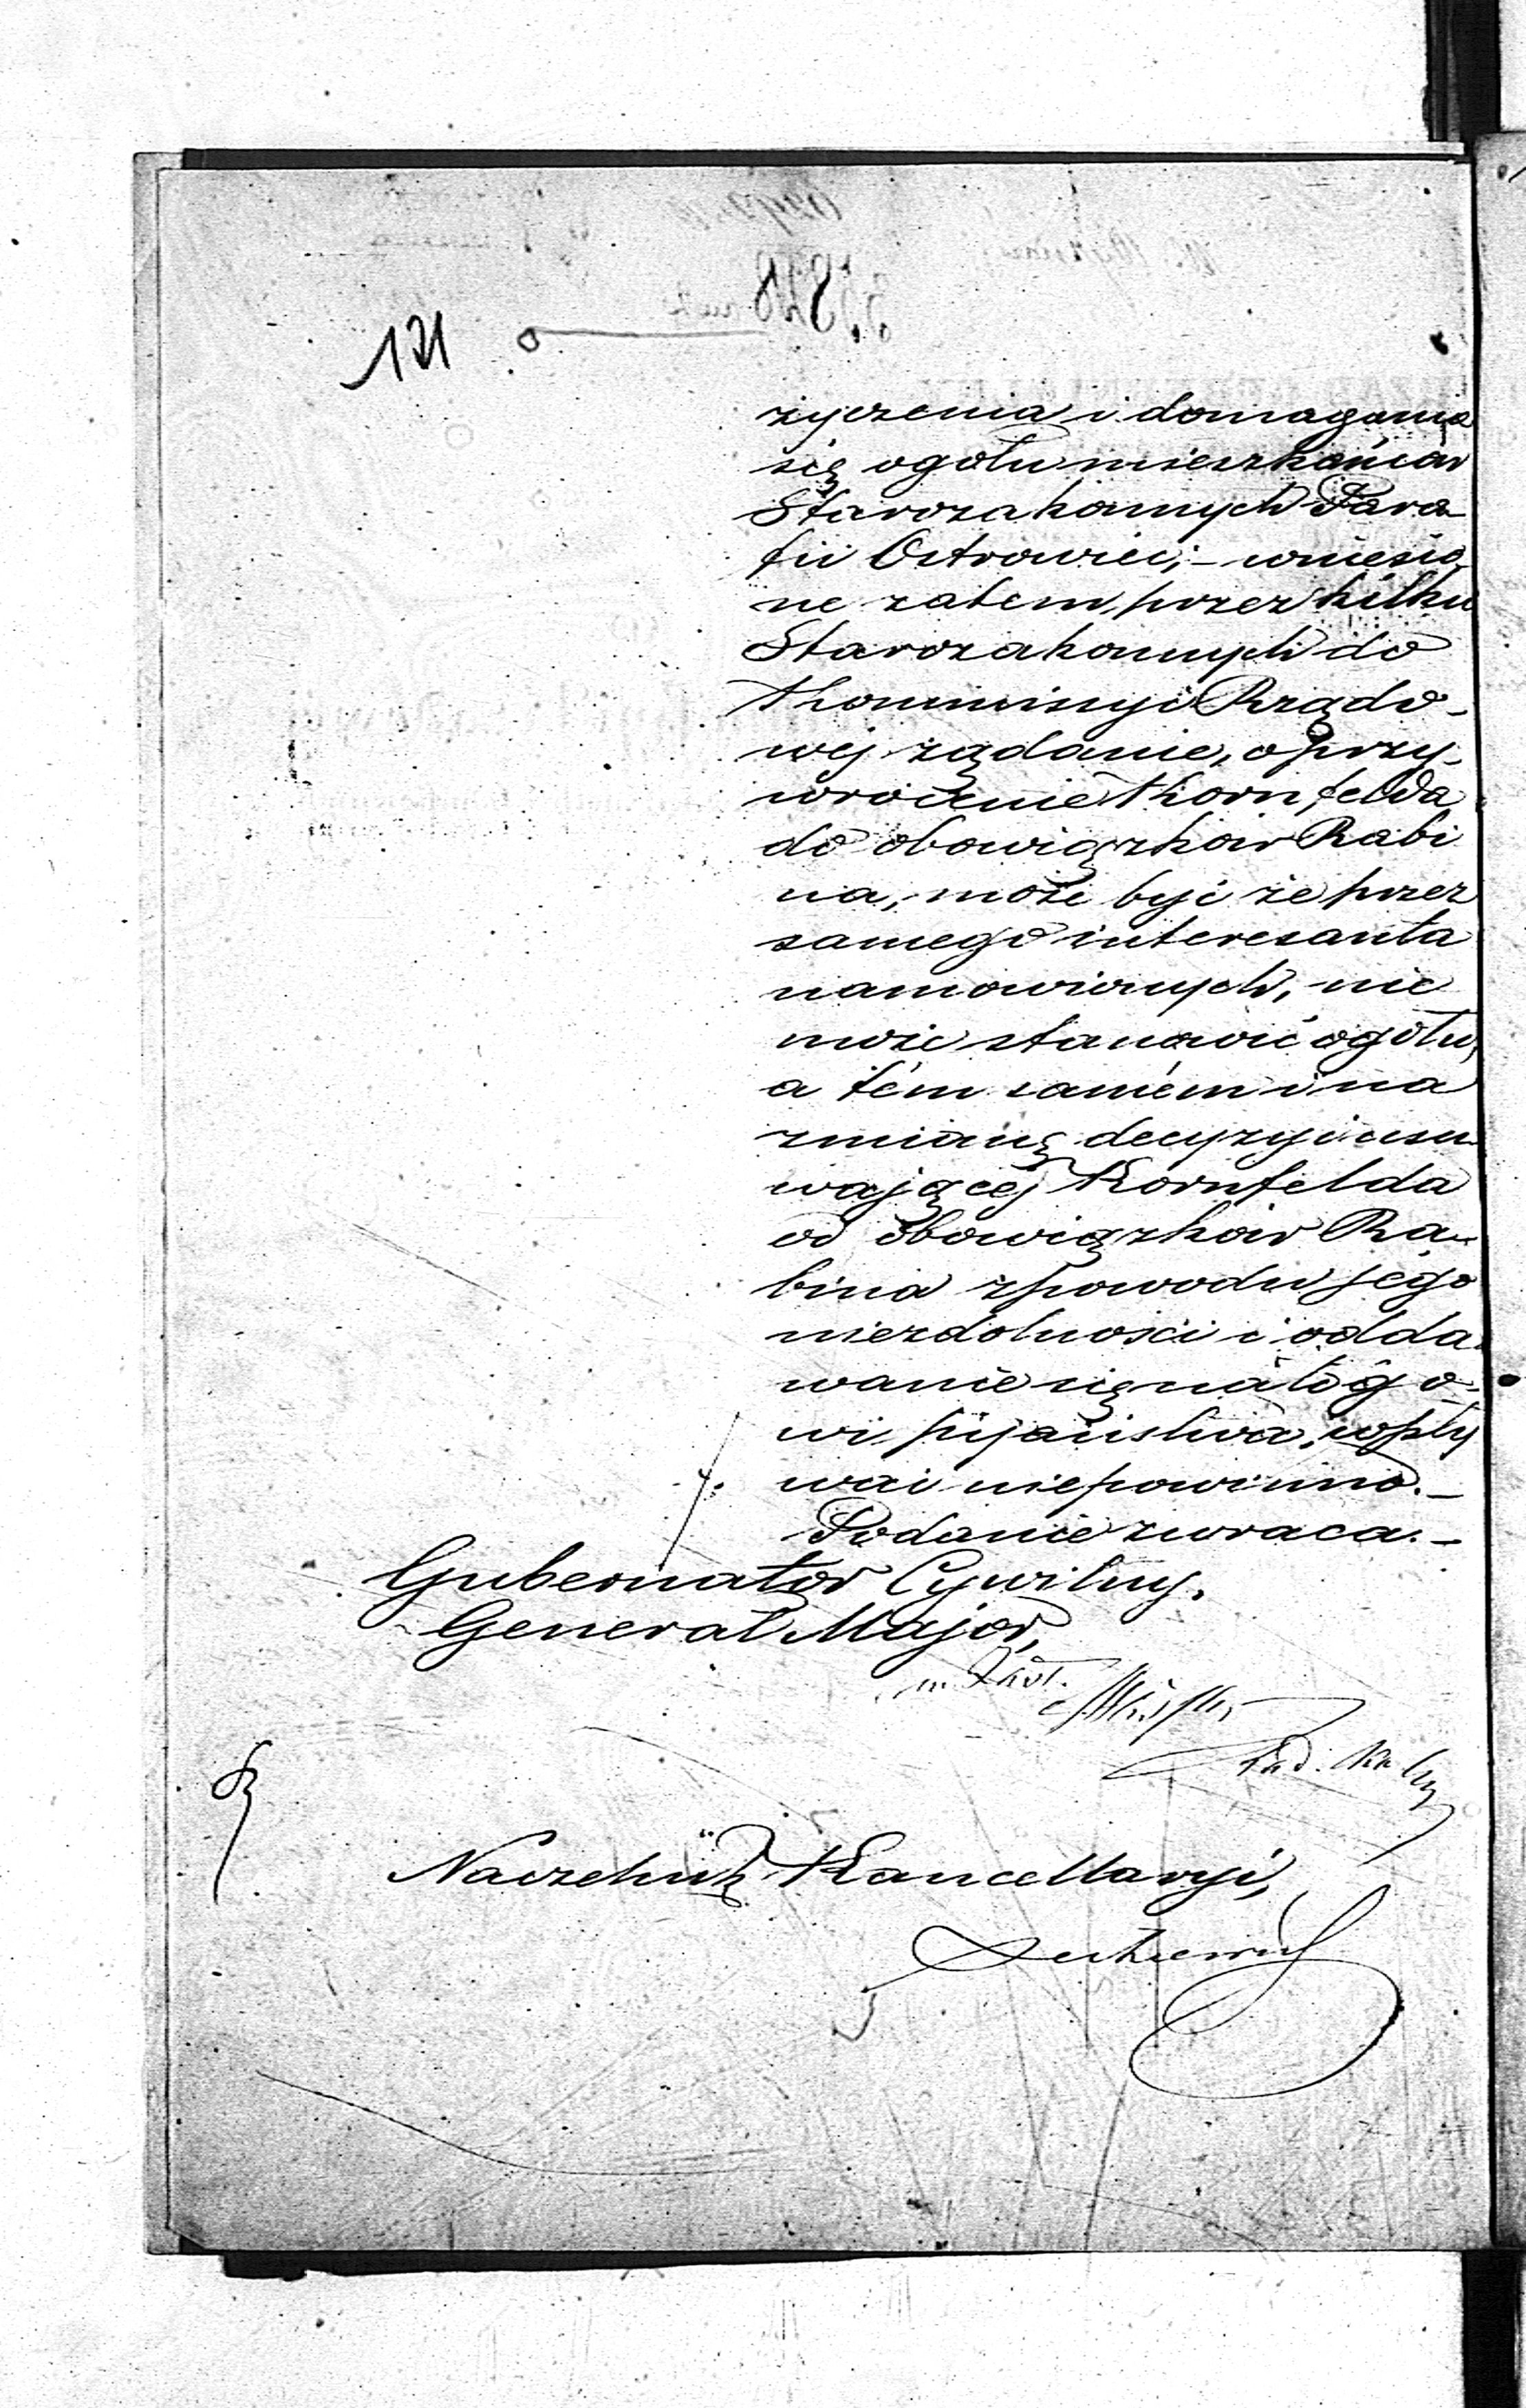 121
życzenia i domagania
się ogółu mieszkańców
Starozakonnych Para-
fii Ostrowiec; – wniesio
ne zatem, przez kilku
Starozakonnych do
Kommissyi Rządo-
wej żądanie, o przy-
wrócenie Kornfelda
do obowiązków Rabi
na, może być że przez
samego interesanta
namówionych, nie
może stanowić ogółu,
a tém samém i na
zmianę decyzyi usu-
wającéj Kornfelda
od obowiązków Ra-
bina z powodu jego
niezdolności i odda-
wanie się nałogo-
wi pijaństwa, wpły
wać nie powinno. –
Podanie zwraca. –
Gubernator Cywilny,
Generał Major,
w Zast.
Rad.
Naczelnik Kancellaryi,